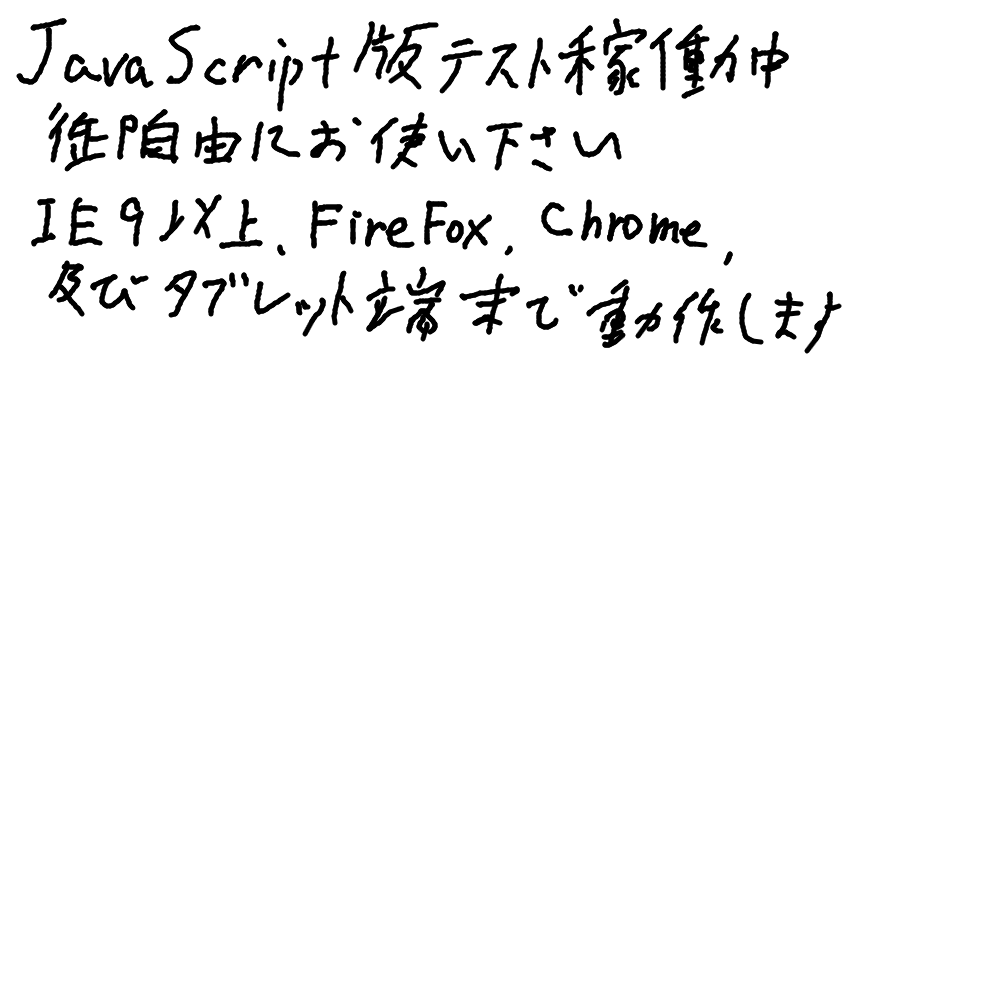 JavaScript版テスト稼働中
自由にお使い下さい
IE9以上、FireFox, Chrome,
及びタブレット端末まで動作します